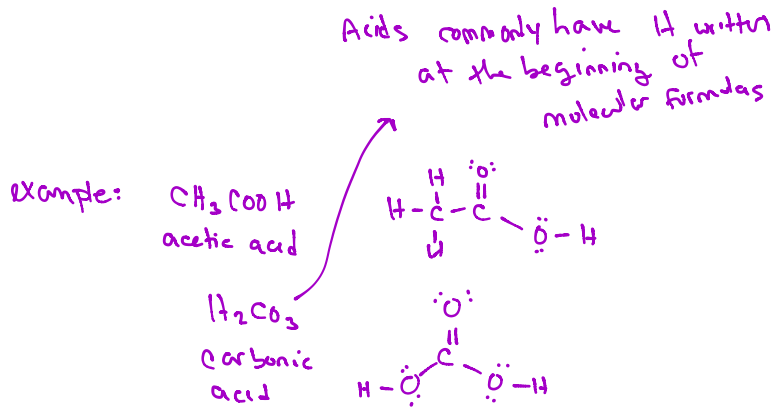 Acids commonly have H written
at the beginning of
molecular formulas
example: CH₃COOH
acetic acid
H :O:
H - C - C
H O - H
H₂CO₃
carbonic
acid
:O:
C
H - O O - H